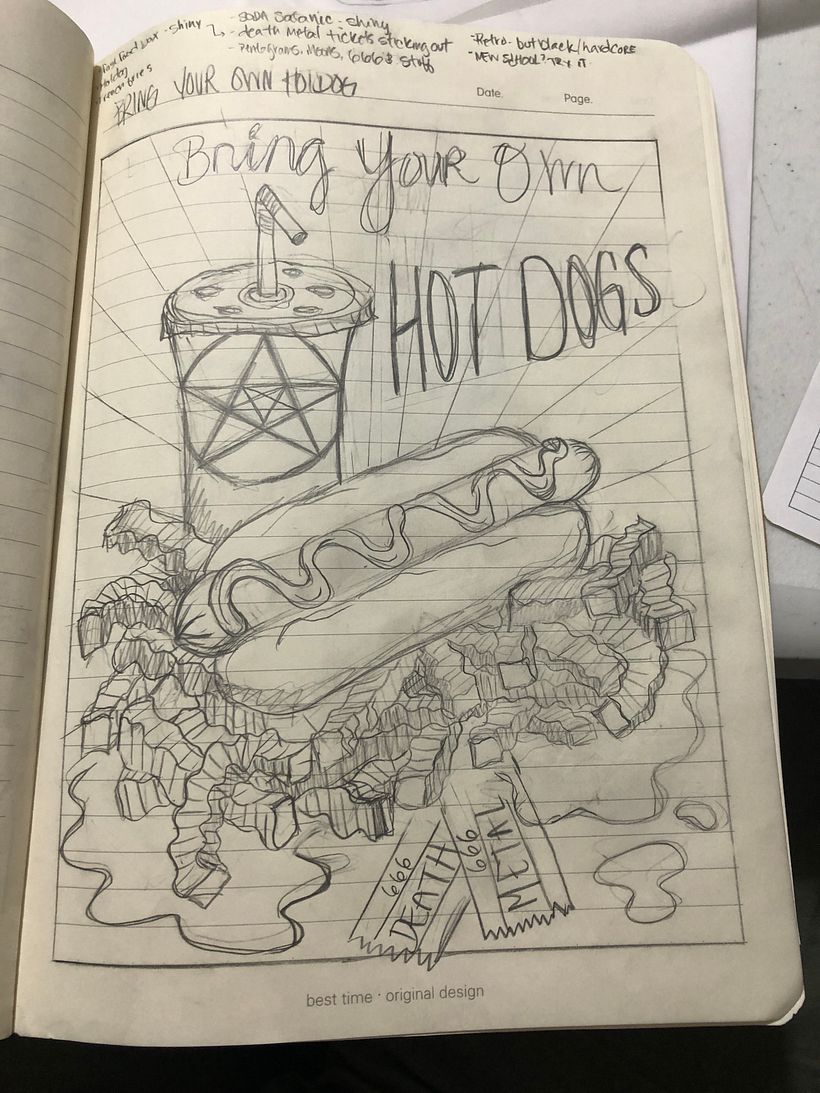 - SODA Satanic - shiny
- death Metal tickets sticking out
- Pentagrams, Moons, 666 & stuff
- Retro - but black/hardcore
- "NEW SCHOOL" TRY IT
Fast Food box - shiny
Hotdog
French fries
BRING YOUR OWN HOTDOG
Date. Page.
Bring Your Own
HOT DOGS
666
DEATH
666
METAL
best time · original design